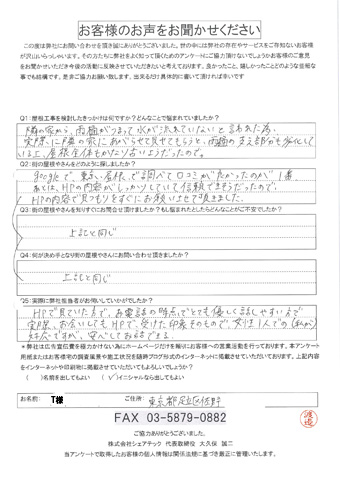 お客様のお声をお聞かせください
この度は弊社にお問い合わせを頂き誠にありがとうございました。世の中には弊社の存在やサービスをご存知ないお客様
が沢山いらっしゃいます。その方たちに弊社をよく知って頂くためのアンケートにご協力頂けないでしょうかお客様のご意見
をお聞かせいただき今後の活動に反映させていただきたいと考えております。良かったこと、嬉しかったことどのような些細な
事でも結構です。是非ご協力お願い致します。出来るだけ具体的に書いて頂ければ幸いです
Q1:屋根工事を検討したきっかけは何ですか？どんなことで悩まれていましたか？
隣の家から、雨樋がつまって水が流れていないと言われた為、
実際に隣の家にあがらせて見せてもらうと、雨樋の支え部分も劣化して
いる上、屋根全体もかなり古いようだったので。
Q2:街の屋根やさんをどのように探しましたか？
googleで、東京、屋根、で調べて口コミが良かったのが1番。
あとは、HPの内容がしっかりしていて信頼できそうだったので、
HPの内容で見つもりをすぐにお願いさせて頂きました。
Q3:街の屋根やさんを知りすぐにお問合せ頂けましたか？もし悩まれたとしたらどんなことがご不安でしたか？
上記と同じ
Q4:何が決め手となり街の屋根やさんにお問い合わせ頂きましたか？
上記と同じ
Q5:実際に弊社担当者がお伺いしていかがでしたか？
HPで見ていた方で、お電話の時点でとても優しく話しやすい方で
実際、お会いしても、HPで、受けた印象そのもので、女性1人での(私が)
対応ですが、安心してお話できる。
*弊社は広告宣伝費を極力かけない為にホームページだけを頼りにお客様への営業活動を行っております。本アンケート
用紙またはお客様宅の調査風景や施工状況を随時ブログ形式のインターネットに掲載させていただいています。上記内容
をインターネットや印刷物に掲載させていただいてもよろしいでしょうか？
( )名前を出してもよい (✓)イニシャルなら出してもよい
お名前: T様 ご住所: 東京都足立区佐野
FAX 03-5879-0882
ご協力ありがとうございました。
株式会社シェアテック 代表取締役 大久保 誠二
当アンケートで取得したお客様の個人情報は関係法令に基づき厳正に管理いたします。